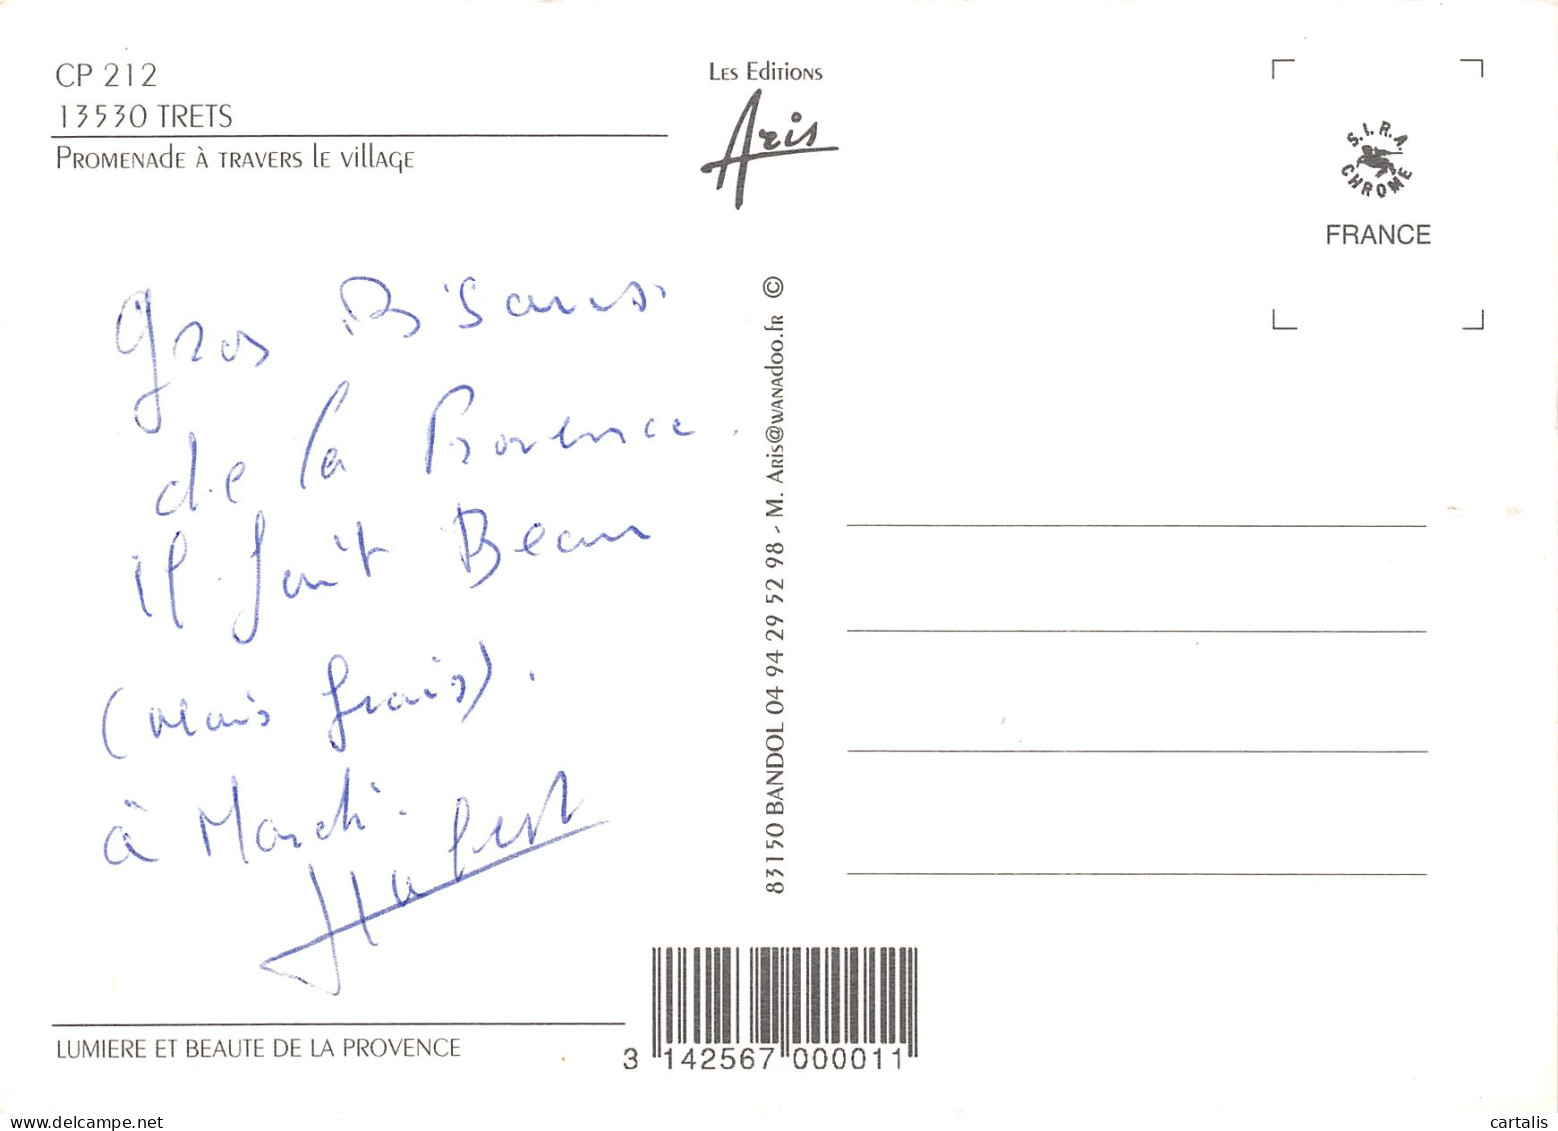 CP 212
13530 TRETS
Promenade à travers le village
Les Editions
Aris
S.I.R.A.
CHROME
FRANCE
Gros Bisous
de la Provence.
il fait Beau
(mais frais).
à Mardi.
Hubert
83150 BANDOL 04 94 29 52 98 - M. Aris@wanadoo.fr ©
LUMIERE ET BEAUTE DE LA PROVENCE
3 142567 000011
cartalis